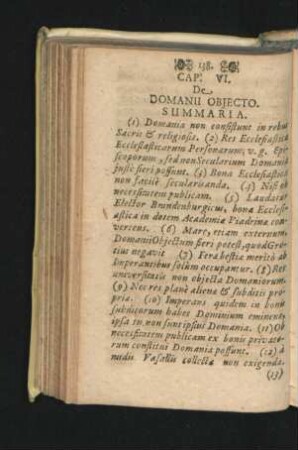 198.
CAP. VI.
De
DOMANII OBJECTO.
SUMMARIA.
(1) Domania non consistunt in rebus
Sacris & religiosis. (2) Res Ecclesiastica
Ecclesiasticarum Personarum, v. g. Epi-
scoporum, sed non Secularium Domania
justè fieri possunt. (3) Bona Ecclesiastica
non facilè secularisanda. (4) Nisi ob
necessitatem publicam. (5) Laudatur
Elector Brandenburgicus, bona Ecclesi-
astica in dotem Academiæ Viadrinæ con-
vertens. (6) Mare, etiam externum,
Domanii Objectum fieri potest, quod Gro-
tius negavit (7) Fera bestia meritò ab
Imperantibus solum occupantur. (8) Res
universitatis non objecta Domaniorum.
(9) Nec res planè alienæ & subditis pro-
pria. (10) Imperans quidem in bonis
subditorum habet Dominium eminens,
ipsa tamen non sunt ipsius Domania. (11) Ob
necessitatem publicam ex bonis privato-
rum constitui Domania possunt. (12) A
nudis Vasallis collectæ non exigendæ.
(13)